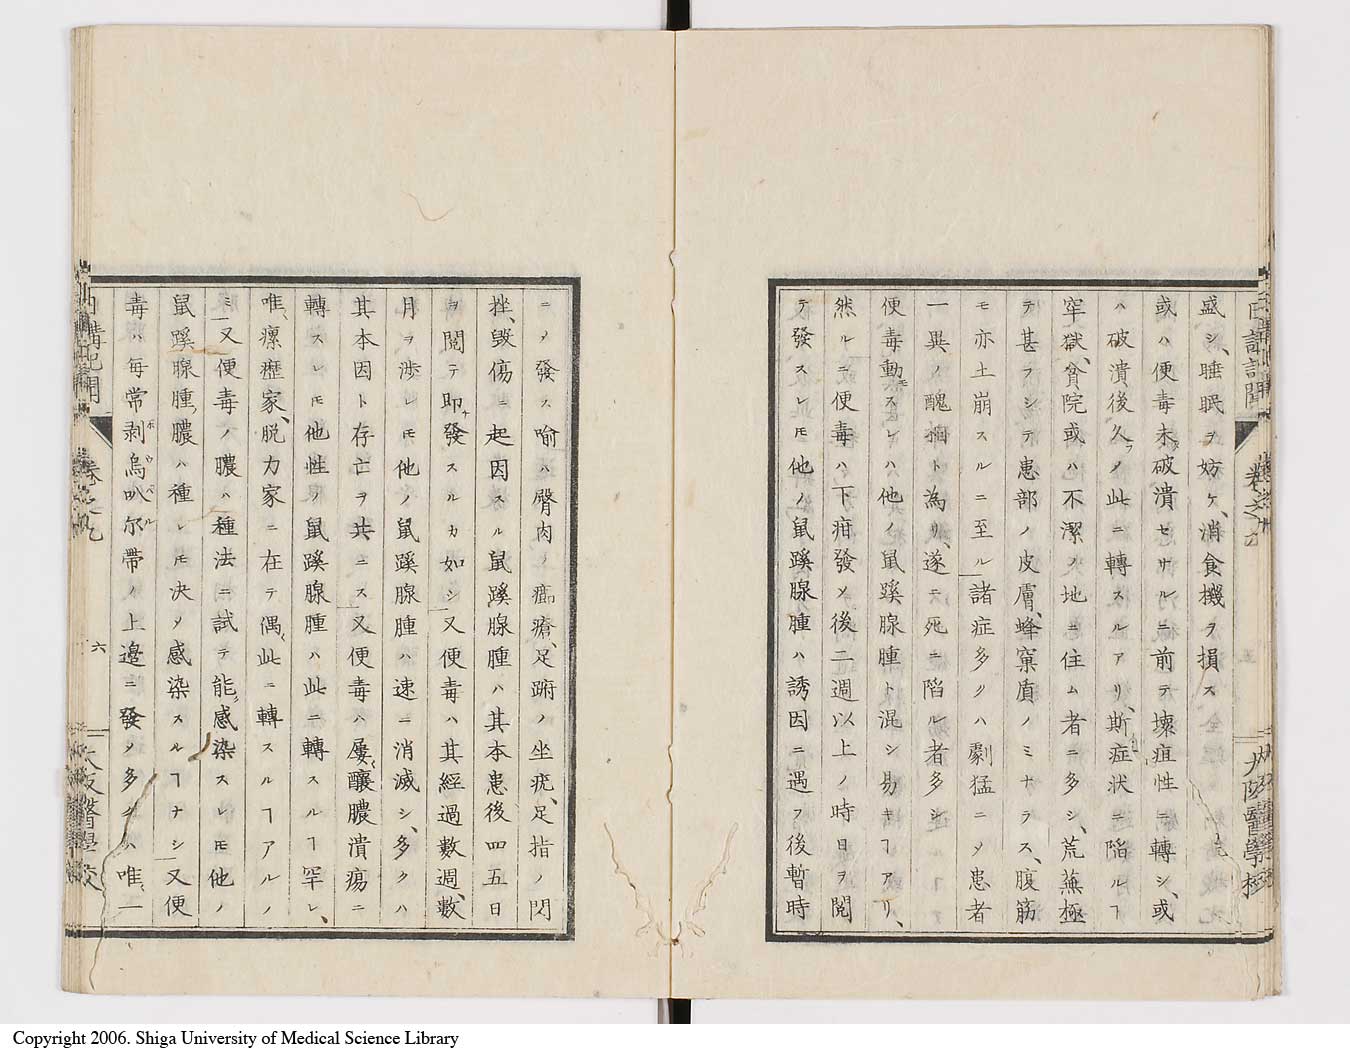 盛シ、睡眠ヲ妨ケ、消食機ヲ損ス
或ハ便毒未タ破潰セサルニ前テ壊疽性ニ轉シ、或
ハ破潰後久フメ此ニ轉スルアリ、斯症状ニ陥ルヿ
窂獄、貧院或ハ不潔ノ地ニ住ム者ニ多シ、荒蕪極
テ甚フシテ患部ノ皮膚、蜂窠盾ノミナラス、腹筋
モ亦土崩スルニ至ル諸症多クハ劇猛ニメ患者
一異ノ醜 ト為リ、遂ニ死ニ陥ル者多シ
便毒動モスレハ他ノ鼠蹊腺腫ト混シ易キヿアリ、
然ルニ便毒ハ下疳發メ後二週以上ノ時日ヲ閲
テ發スレ𪜈他ノ鼠蹊腺腫ハ誘因ニ遇フ後暫時
卷之九
大阪醫學校
ニメ發ス喻ハ臀肉ノ 瘡、足蹄ノ坐疣、足指ノ閃
挫、毀傷ニ起因スル鼠蹊腺腫ハ其本患後四五日
ヲ閲テ即チ發スルカ如シ又便毒ハ其經過數週、數
月ヲ渉レ𪜈他ノ鼠蹊腺腫ハ速ニ消滅シ、多クハ
其本因ト存亡ヲ共ニス又便毒ハ屡〻釀膿潰瘍ニ
轉スレ𪜈他性ノ鼠蹊腺腫ハ此ニ轉スルヿ罕レ、
唯、瘰癧家、脱力家ニ在テ偶〻此ニ轉スルヿアルノ
ミ又便毒ノ膿ハ種法ニ試テ能ク感染スレ𪜈他ノ
鼠蹊腺腫ノ膿ハ種レ𪜈决メ感染スルヿナシ又便
毒ハ毎常剥烏叭尔帶ノ上邉ニ發メ多クハ唯〻一
日講記聞
卷之九
六
大阪醫學校
Copyright 2006. Shiga University of Medical Science Library